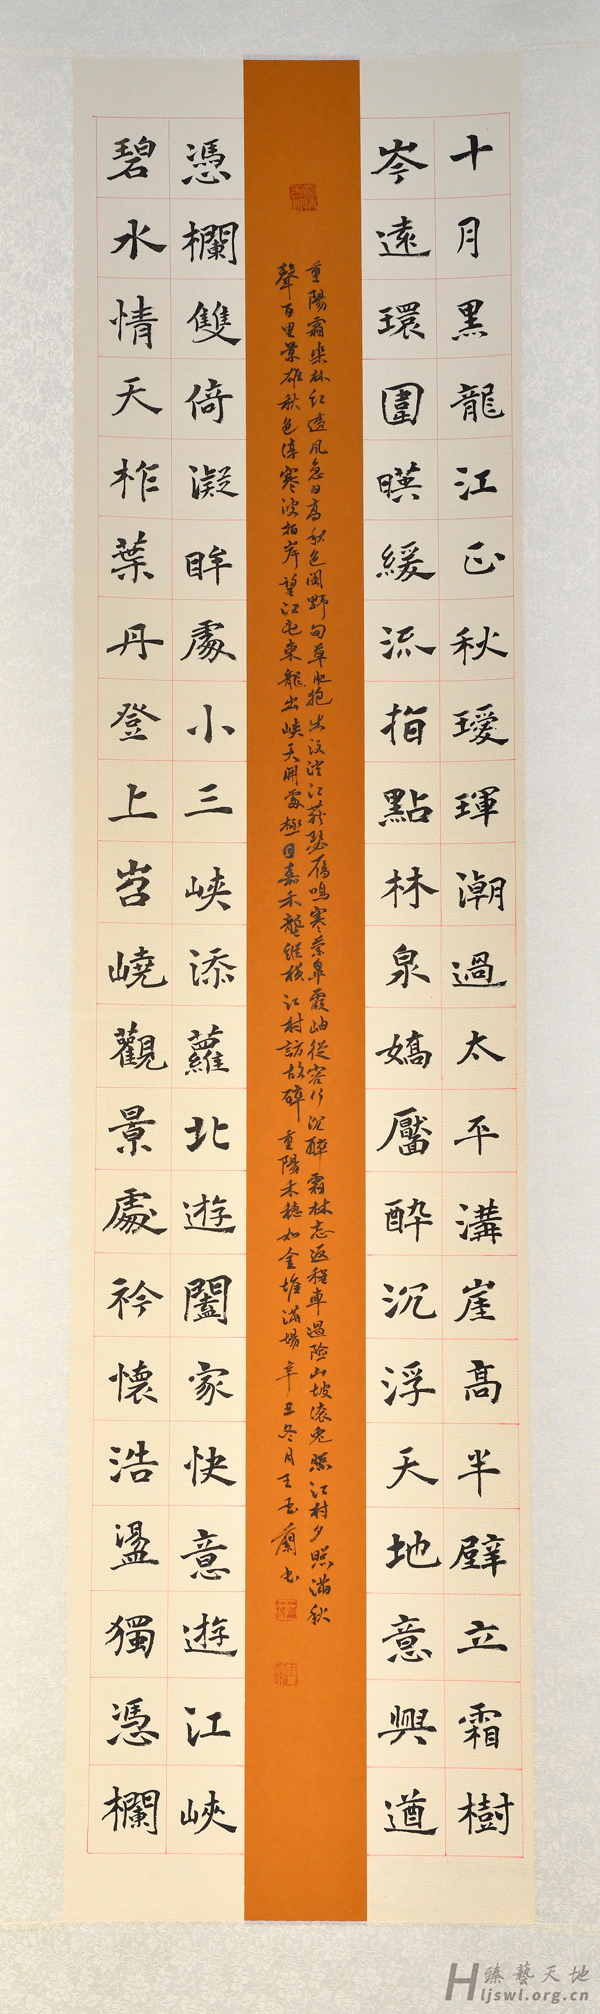 十月黑龍江正秋璦琿潮過太平溝崖高半壁立霜樹
岑遠環圍暎緩流指點林泉嬌靨醉沉浮天地意興遒
重陽霜染林紅透風急日高秋色闊野旬草肥抱
雁鳴寒葉
霞岫從容行沉醉霜林忘返程車過險山坡滾兔照江村夕照滿秋
聲百里葉雄秋色淳寒波拍岸望江屯東龍出峽天開處極目嘉禾壟縱橫江村訪故碎重陽禾穗如金堆滿場辛丑冬月王玉蘭書
憑欄雙倚凝眸處小三峽添蘿北遊闔家快意遊江峽
碧水情天柞葉丹登上岧嶢觀景處衿懷浩盪獨憑欄
臻藝天地
Hljswl.org.cn